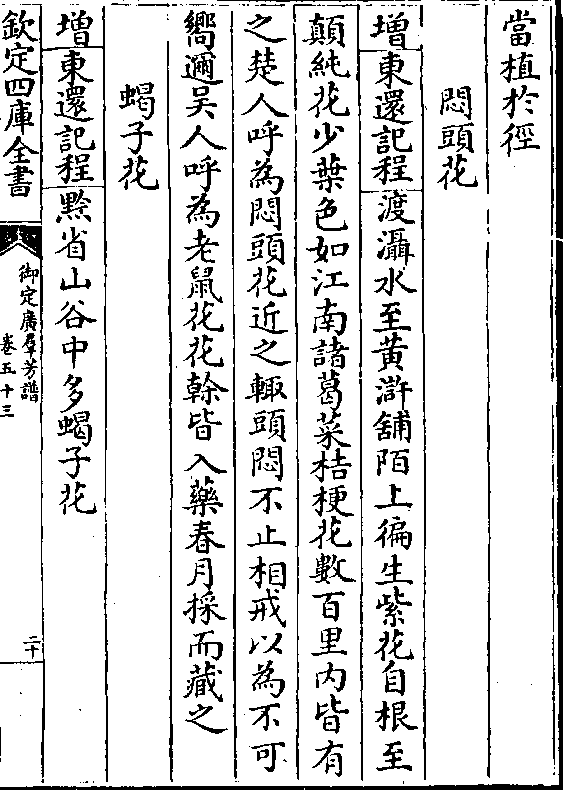 當植於徑
悶頭花
增東還記程渡灄水至黃滸舖陌上徧生紫花自根至
顛純花少葉色如江南諸葛菜桔梗花數百里内皆有
之楚人呼為悶頭花近之輙頭悶不止相戒以為不可
嚮邇吴人呼為老鼠花花幹皆入藥春月採而藏之
蝎子花
增東還記程黔省山谷中多蝎子花
欽定四庫全書
御定廣羣芳譜
卷五十三
二十